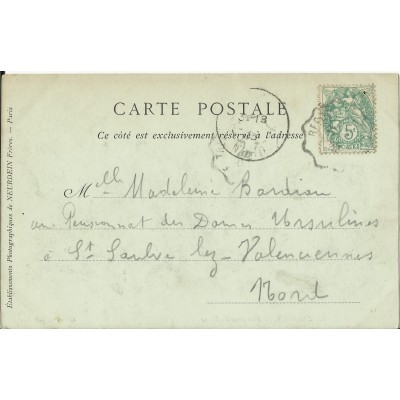 CARTE POSTALE
Ce côté est exclusivement réservé à l'adresse
Mlle Madeleine Bardiau
au Pensionnat des Dames Ursulines
à St Saulve lez-Valenciennes
Nord
Etablissements Photographiques de NEURDEIN Frères. — Paris
5c